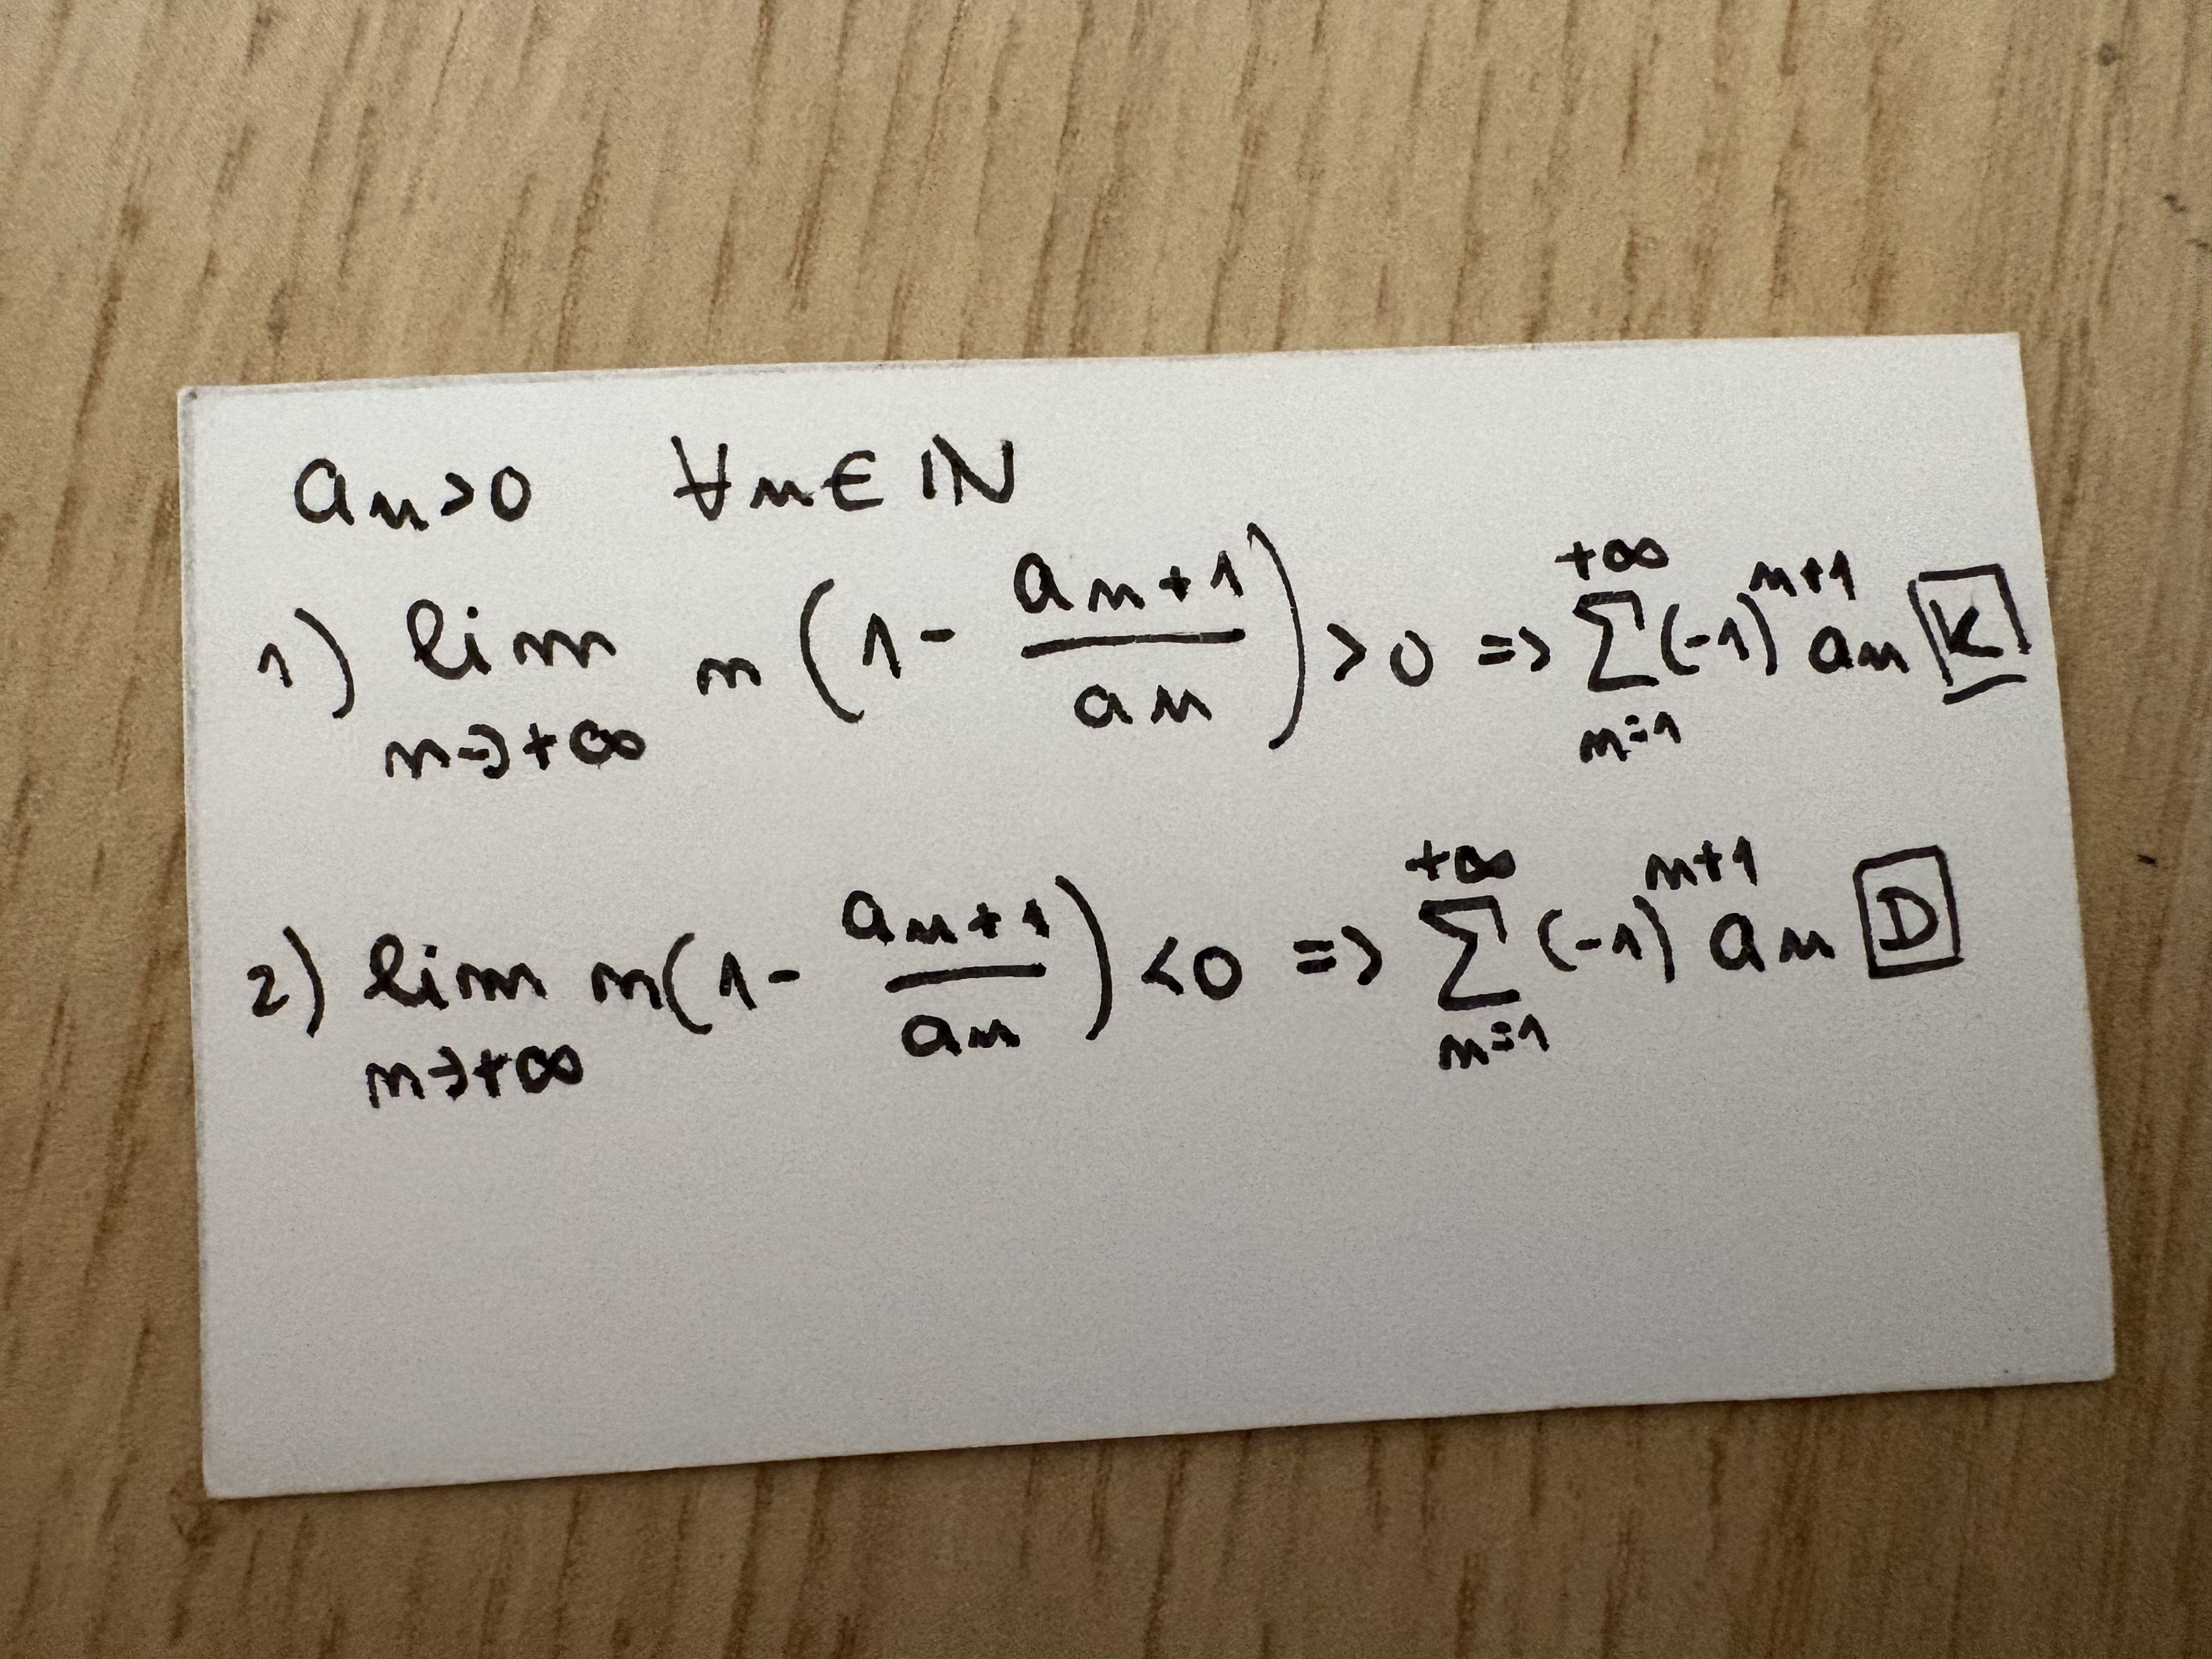 aₙ>0 ∀n∈ℕ
1) lim_{n→+∞} n(1 - \frac{a_{n+1}}{a_n}) > 0 => \sum_{n=1}^{+∞} (-1)^{n+1} a_n [K]
2) lim_{n→+∞} n(1 - \frac{a_{n+1}}{a_n}) < 0 => \sum_{n=1}^{+∞} (-1)^{n+1} a_n [D]